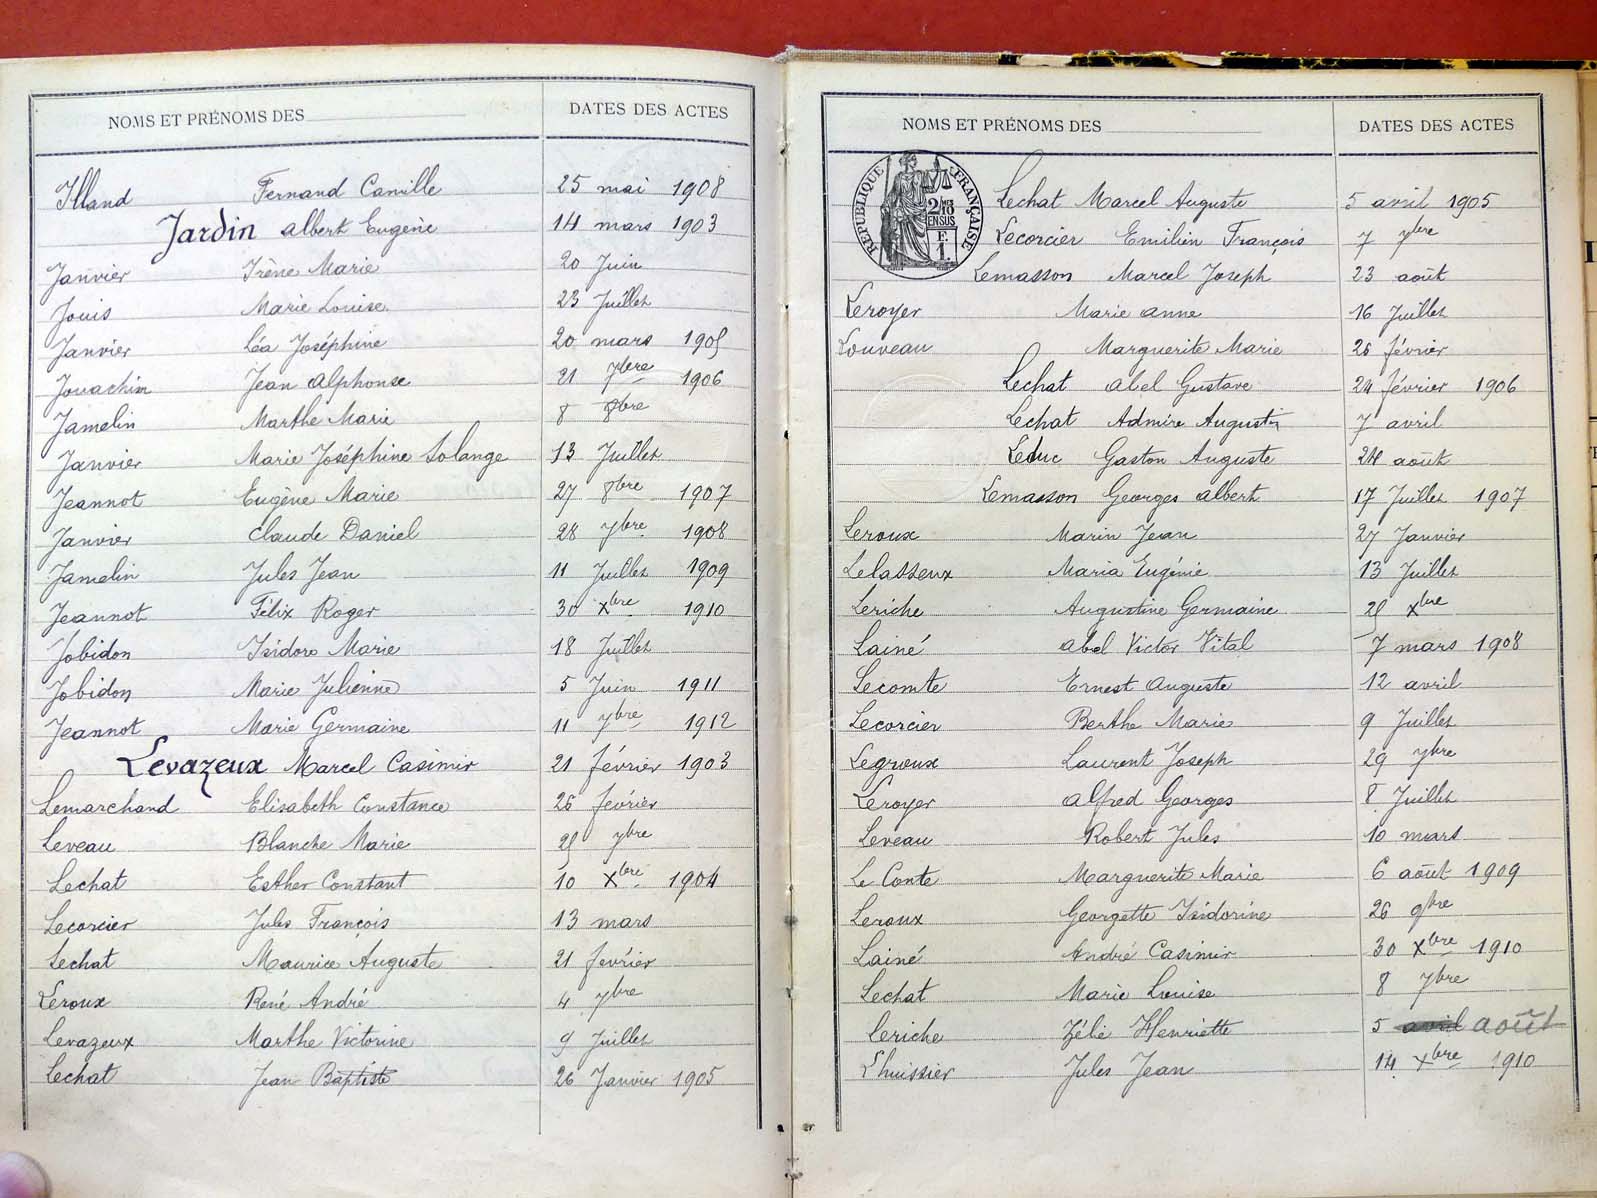 NOMS ET PRÉNOMS DES DATES DES ACTES
Illand Fernand Camille 25 mai 1908
Jardin Albert Eugène 14 mars 1903
Janvier Irène Marie 20 Juin
Jouis Marie Louise 23 Juillet
Janvier Léa Joséphine 20 mars 1905
Jouachin Jean Alphonse 21 7bre 1906
Jamelin Marthe Marie 8 8bre
Janvier Marie Joséphine Solange 13 Juillet
Jeannot Eugène Marie 27 8bre 1907
Janvier Claude Daniel 28 7bre 1908
Jamelin Jules Jean 11 Juillet 1909
Jeannot Félix Roger 30 Xbre 1910
Jobidon Isidore Marie 18 Juillet
Jobidon Marie Julienne 5 Juin 1911
Jeannot Marie Germaine 11 7bre 1912
Levazeux Marcel Casimir 21 février 1903
Lemarchand Elisabeth Constance 26 février
Leveau Blanche Marie 25 7bre
Lechat Esther Constant 10 Xbre 1904
Lecorcier Jules François 13 mars
Lechat Maurice Auguste 21 février
Leroux René André 4 7bre
Levazeux Marthe Victorine 9 Juillet
Lechat Jean Baptiste 26 Janvier 1905
NOMS ET PRÉNOMS DES DATES DES ACTES
RÉPUBLIQUE FRANÇAISE
2 MES 10 EN SUS
F. 1.
Lechat Marcel Auguste 5 avril 1905
Lecorcier Emilien François 7 7bre
Lemasson Marcel Joseph 23 août
Leroyer Marie Anne 16 Juillet
Louveau Marguerite Marie 26 février
Lechat Abel Gustave 24 février 1906
Lechat Admire Augustin 7 avril
Leduc Gaston Auguste 24 août
Lemasson Georges Albert 17 Juillet 1907
Leroux Marin Jean 27 Janvier
Lelasseux Maria Eugénie 13 Juillet
Leriche Augustine Germaine 25 Xbre
Lainé Abel Victor Vital 7 mars 1908
Lecomte Ernest Auguste 12 avril
Lecorcier Berthe Marie 9 Juillet
Legrieux Laurent Joseph 29 7bre
Leroyer Alfred Georges 8 Juillet
Leveau Robert Jules 10 mars
Le Conte Marguerite Marie 6 août 1909
Leroux Georgette Isidorine 26 9bre
Lainé André Casimir 30 Xbre 1910
Lechat Marie Louise 8 7bre
Leriche Zélie Henriette 5 avril août
Lhuissier Jules Jean 14 Xbre 1910